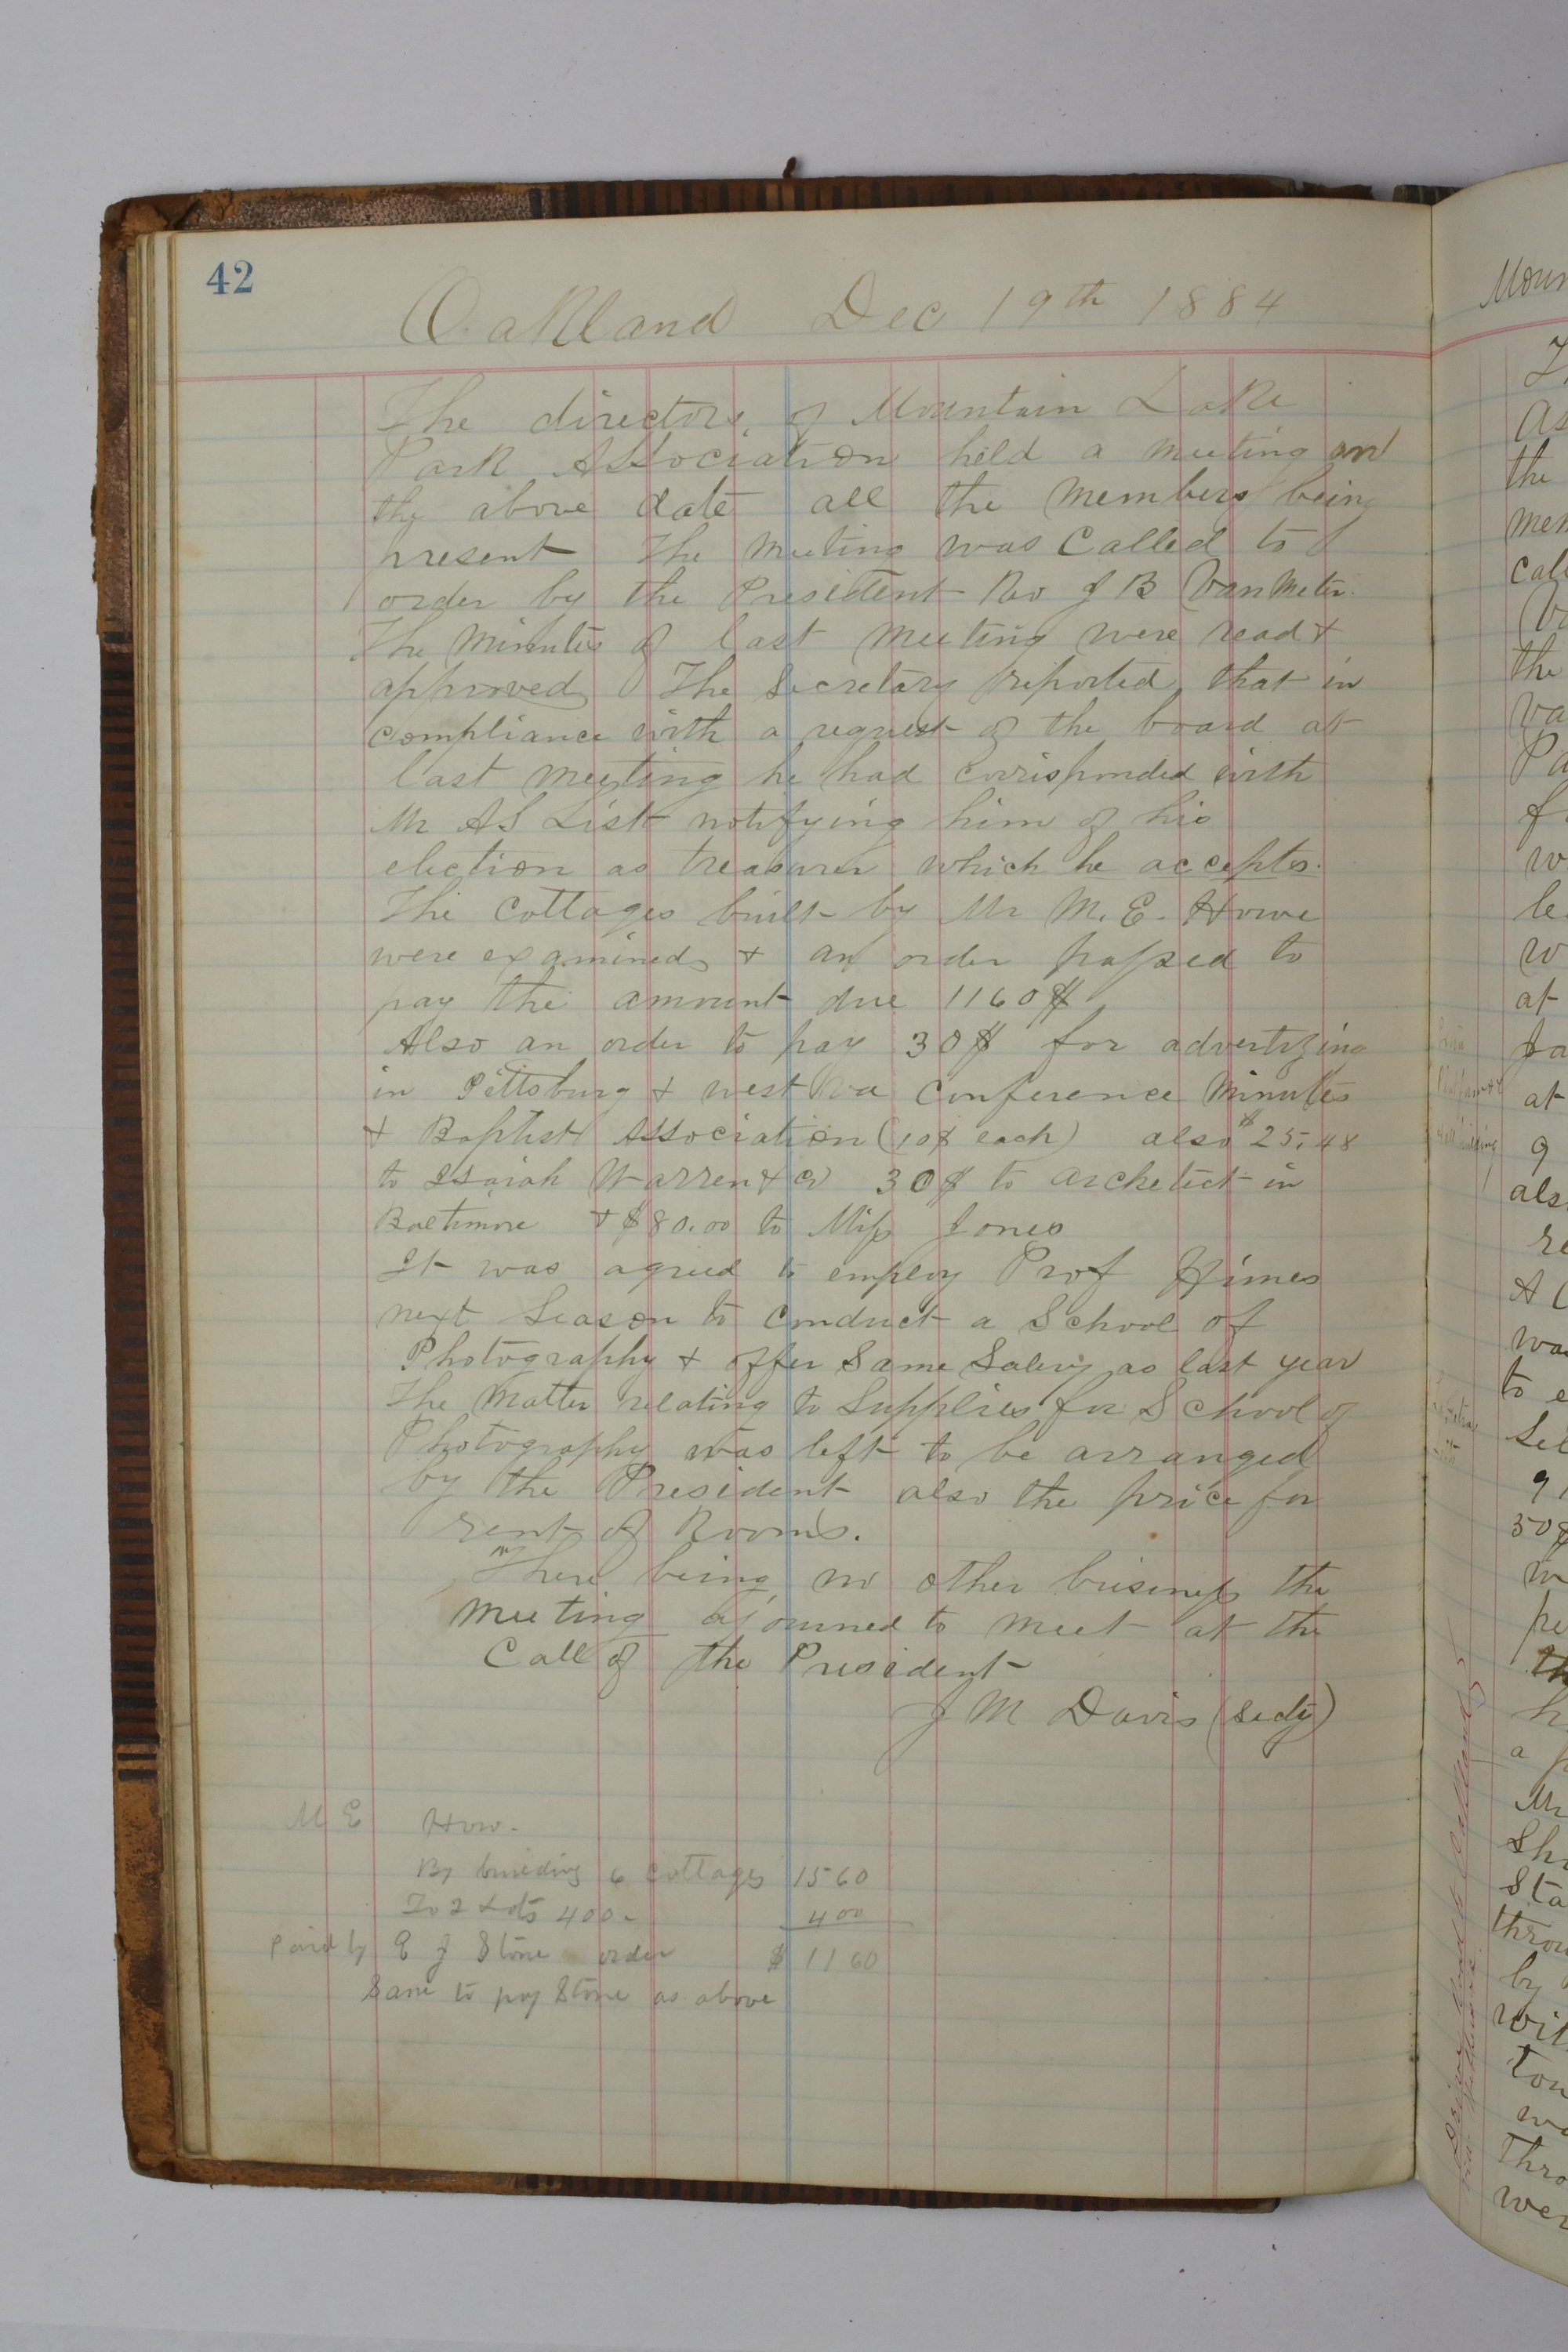 42
Oakland Dec 19th 1884
The directors of Mountain Lake
Park Association held a meeting on
the above date all the members being
present The meeting was Called to
order by the President Rev J B VanMeter.
The Minutes of last meeting were read &
approved The Secretary reported that in
compliance with a request of the board at
last meeting he had corrisponded with
Mr AS List notifying him of his
election as treasurer which he accepts.
The Cottages built by Mr M. E. Howe
were examined & an order passed to
pay the amount due 1160$
Also an order to pay 30$ for advertizing
in Pittsburg & west Va Conference Minutes
& Baptist Association (10$ each) also $25.48
to Isaiah Warren & Co 30$ to archetict in
Baltimore & $80.00 to Miss Jones
It was agreed to employ Prof Himes
next Season to Conduct a School of
Photography & offer Same Salery as last year
The Matter relating to Supplies for School of
Photography was left to be arranged
by the President also the price for
rent of Rooms.
There being no other business the
Meeting ajourned to meet at the
Call of the President
J M Davis (secty)
M E How.
By building 6 Cottages 1560
To 2 Lots 400- 400
Paid by E J Stone order $ 1160
Same to pay Stone as above
Moun
As
the
men
call
the
va
Pa
w
le
w
at
at
9
als
re
was
to e
Sel
50$
w
pe
h
a p
Mr
Sh
Sta
throu
by
wit
tow
wa
Thro
wer